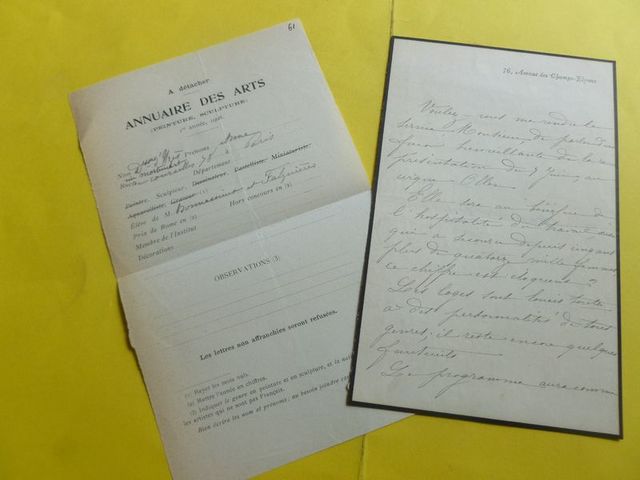 61
A détacher
ANNUAIRE DES ARTS
(PEINTURE, SCULPTURE)
ANNÉE, 1921
Nom Duchesse d'Uzès Prénoms Anne
Rue de Courcelles 78 à Paris
Département
Peintre, Sculpteur, Dessinateur, Pastelliste, Miniaturiste
Aquarelliste, Graveur (1)
Élève de M. Bonnassieux et Falguières
Prix de Rome en (2) Hors concours en (2)
Membre de l'Institut
Décorations
OBSERVATIONS (3)
Les lettres non affranchies seront refusées.
(1) Rayer les mots nuls.
(2) Mettre l'année en chiffres.
(3) Indiquer le genre en peinture et en sculpture, et la nati
les artistes qui ne sont pas Français.
Bien écrire les nom et prénoms; au besoin joindre car
76, Avenue des Champs-Élysées
Voulez-vous me rendre le
service Monsieur, de parler du
bienveillante de la re
présentation du 7 Juin, au
cirque
Elle sera au bénéfice de
l'hospitalité du travail
qui a secouru depuis cinq ans
plus de quatorze mille femmes
ce chiffre est éloquent?
Les loges sont louées toutes
à des personnalités de tous
genres; il reste encore quelques
fauteuils
Le programme aura comme